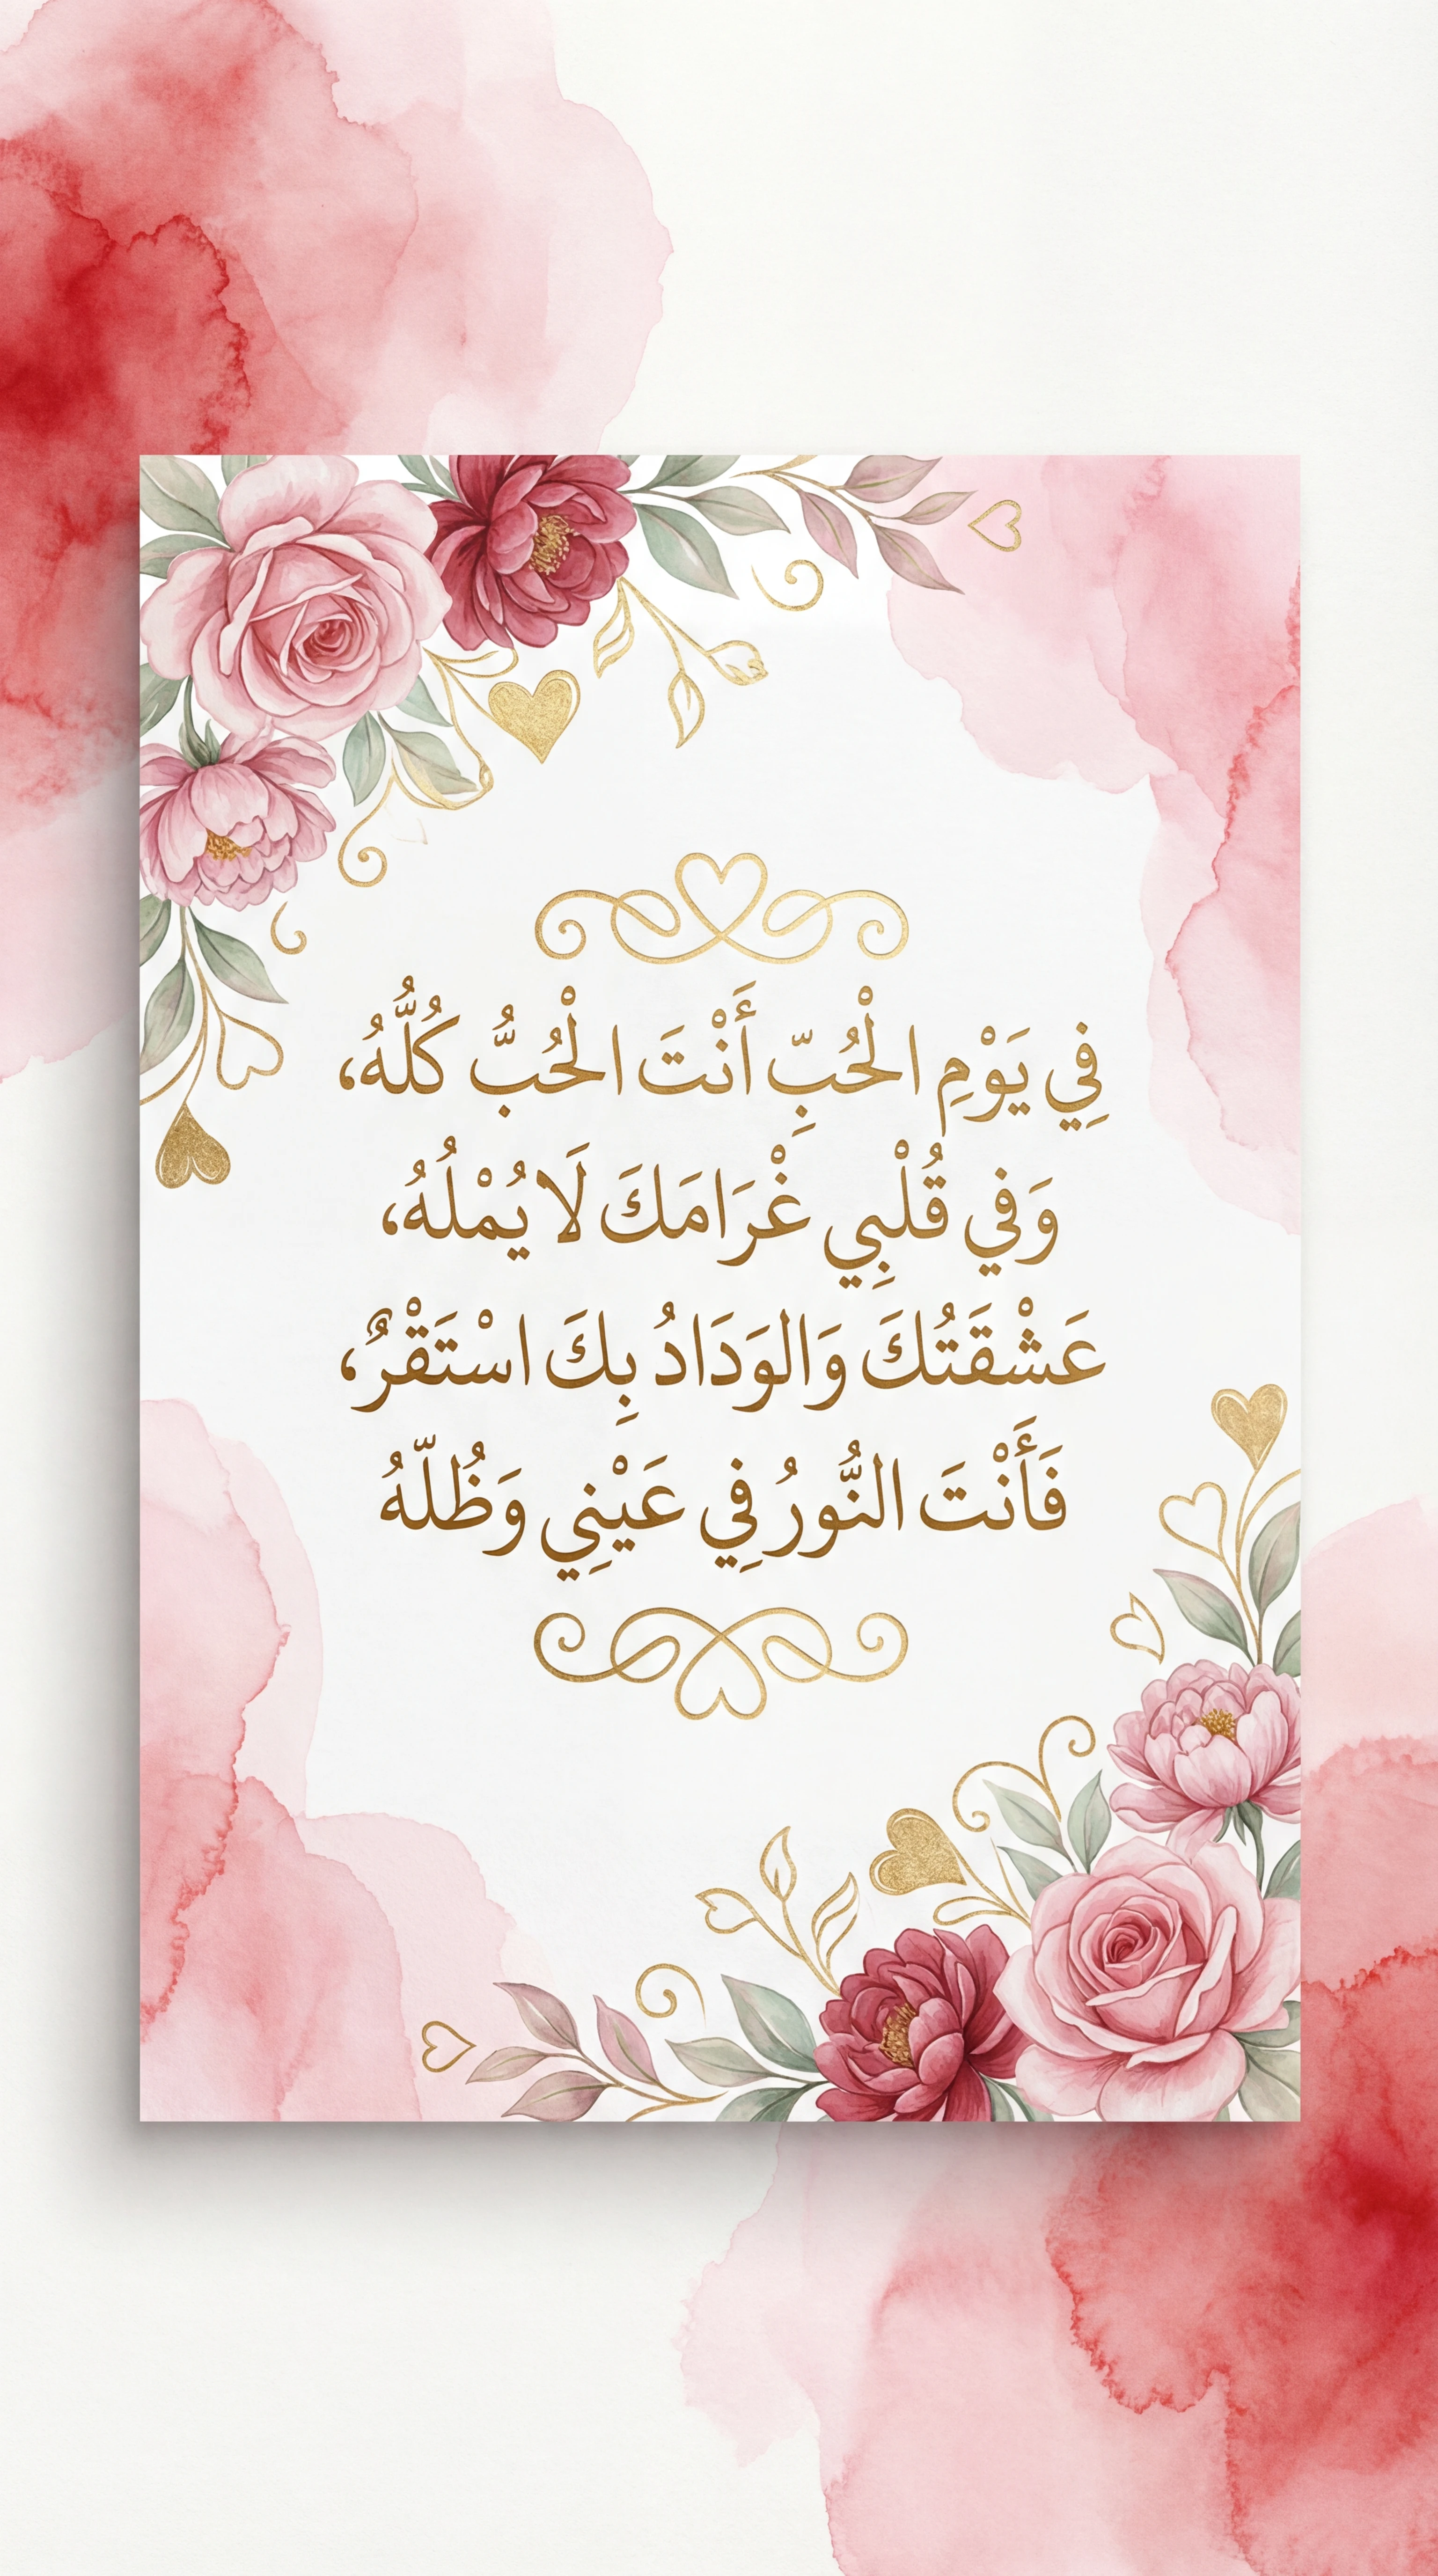 فِي يَوْمِ الْحُبِّ أَنْتَ الْحُبُّ كُلُّهُ،
وَفي قُلْبِي غْرَامَكَ لَا يُمْلُهُ،
عَشْقَتُكَ وَالوَدَادُ بِكَ اسْتَقْرٌ،
فَأَنْتَ النُّورُ فِي عَيْنِي وَظُلّهُ